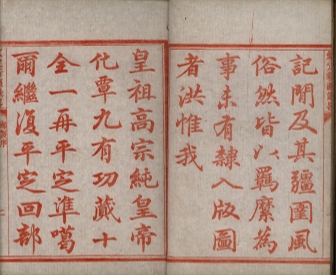 記聞及其疆圉風
俗然皆以羈縻為
事未有隸入版圖
者洪惟我
皇祖高宗純皇帝
化覃九有功蕆十
全一再平定準噶
爾繼復平定回部